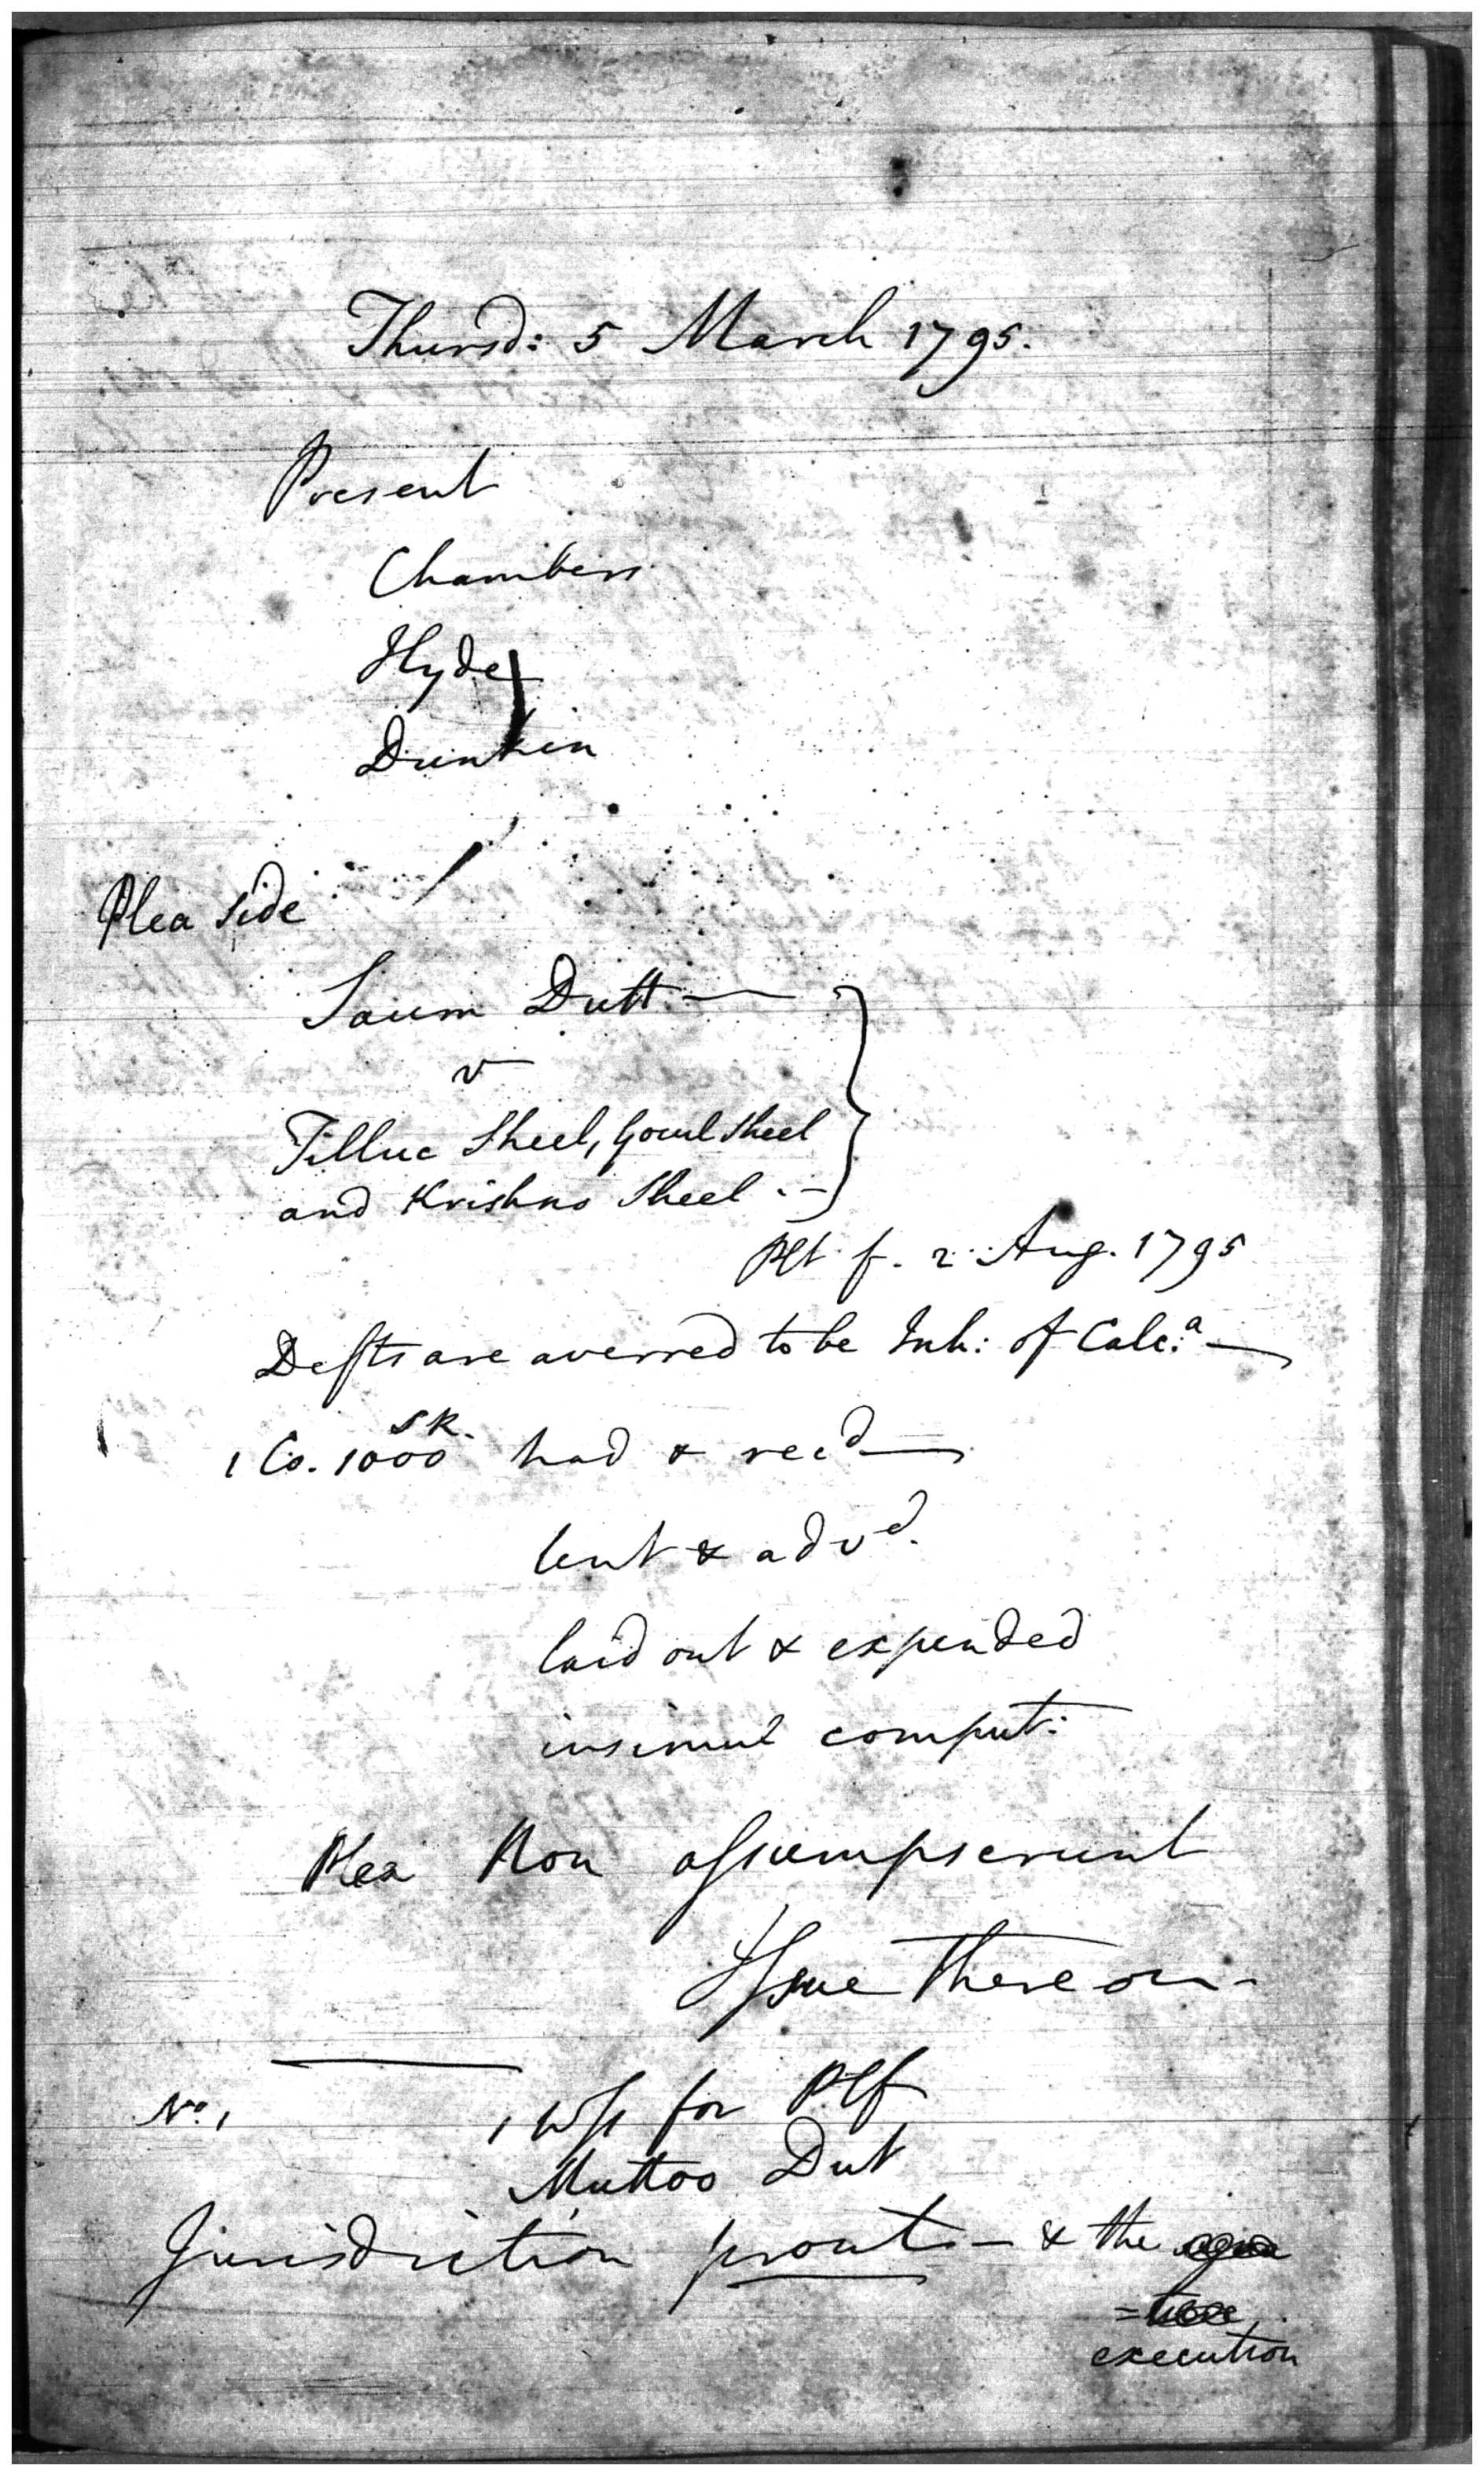 Thursd: 5 March 1795.
Present
Chambers
Hyde
Dunkin
Plea side
Saum Dutt
v
Tilluc Sheel, Gocul Sheel
and Krishno Sheel
Plt f. 2 Aug. 1795
Defts are averred to be Inh: of Calc:a
SR.
1 Co. 1000 had & recd
lent & advd.
laid out & expended
insimul comput:
Plea Non assumpserunt
Issue thereon
No. 1 1 Wss for Plf
Muttoo Dut
Jurisdiction prout - & the
execution